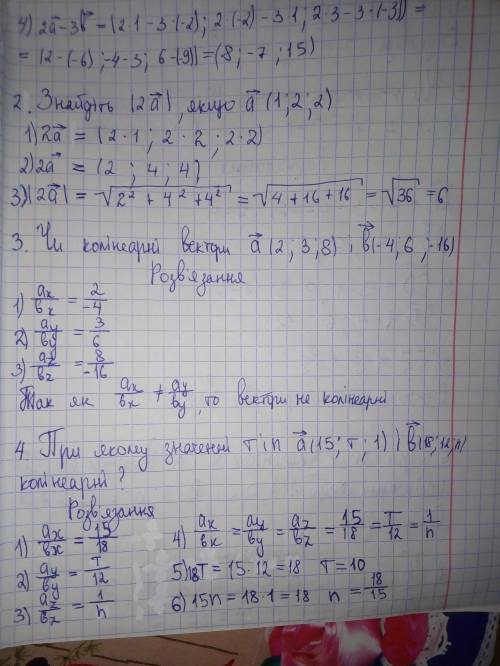 4) 2a⃗-3b⃗=(2·1-3·(-2); 2·(-2)-3·1; 2·3-3·(-3))=
=(2-(-6);-4-3; 6-(-9))=(8; -7; 15)
2. Знайдіть |2a⃗|, якщо a⃗ (1; 2; 2)
1) 2a⃗ = (2·1; 2·2; 2·2)
2) 2a⃗ = (2; 4; 4)
3) |2a⃗| = √(2²+4²+4²) = √(4+16+16) = √36 = 6
3. Чи колінеарні вектори a⃗ (2; 3; 8) і b⃗(-4; 6; -16)
Розв'язання
1) aₓ/bₓ = 2/-4
2) ay/by = 3/6
3) az/bz = 8/-16
Так як ax/bx ≠ ay/by, то вектори не колінеарні
4. При якому значенні т і n a⃗(15; т; 1) і b⃗(18; 12; n)
колінеарні?
Розв'язання
1) ax/bx = 15/18
2) ay/by = т/12
3) az/bz = 1/n
4) ax/bx = ay/by = az/bz = 15/18 = т/12 = 1/n
5) 18т = 15·12 = 18 т = 10
6) 15n = 18·1 = 18 n = 18/15